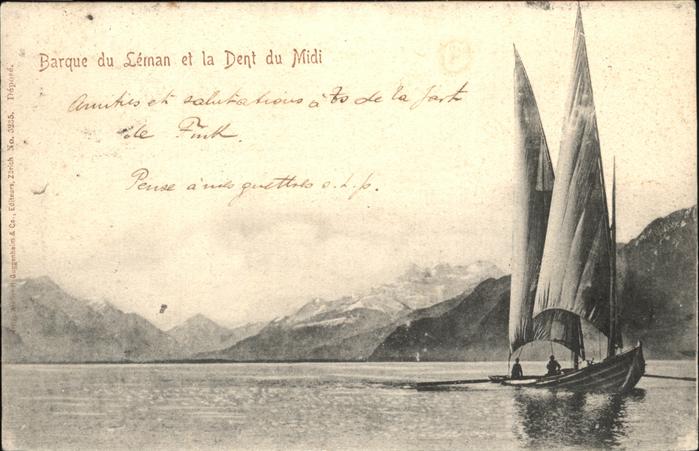 Barque du Léman et la Dent du Midi
Amitiés et salutations à ts de la part
de Fink.
Pense à mes guettres s. t. p.
Guggenheim & Co., Editeurs, Zürich No. 5235. Déposé.